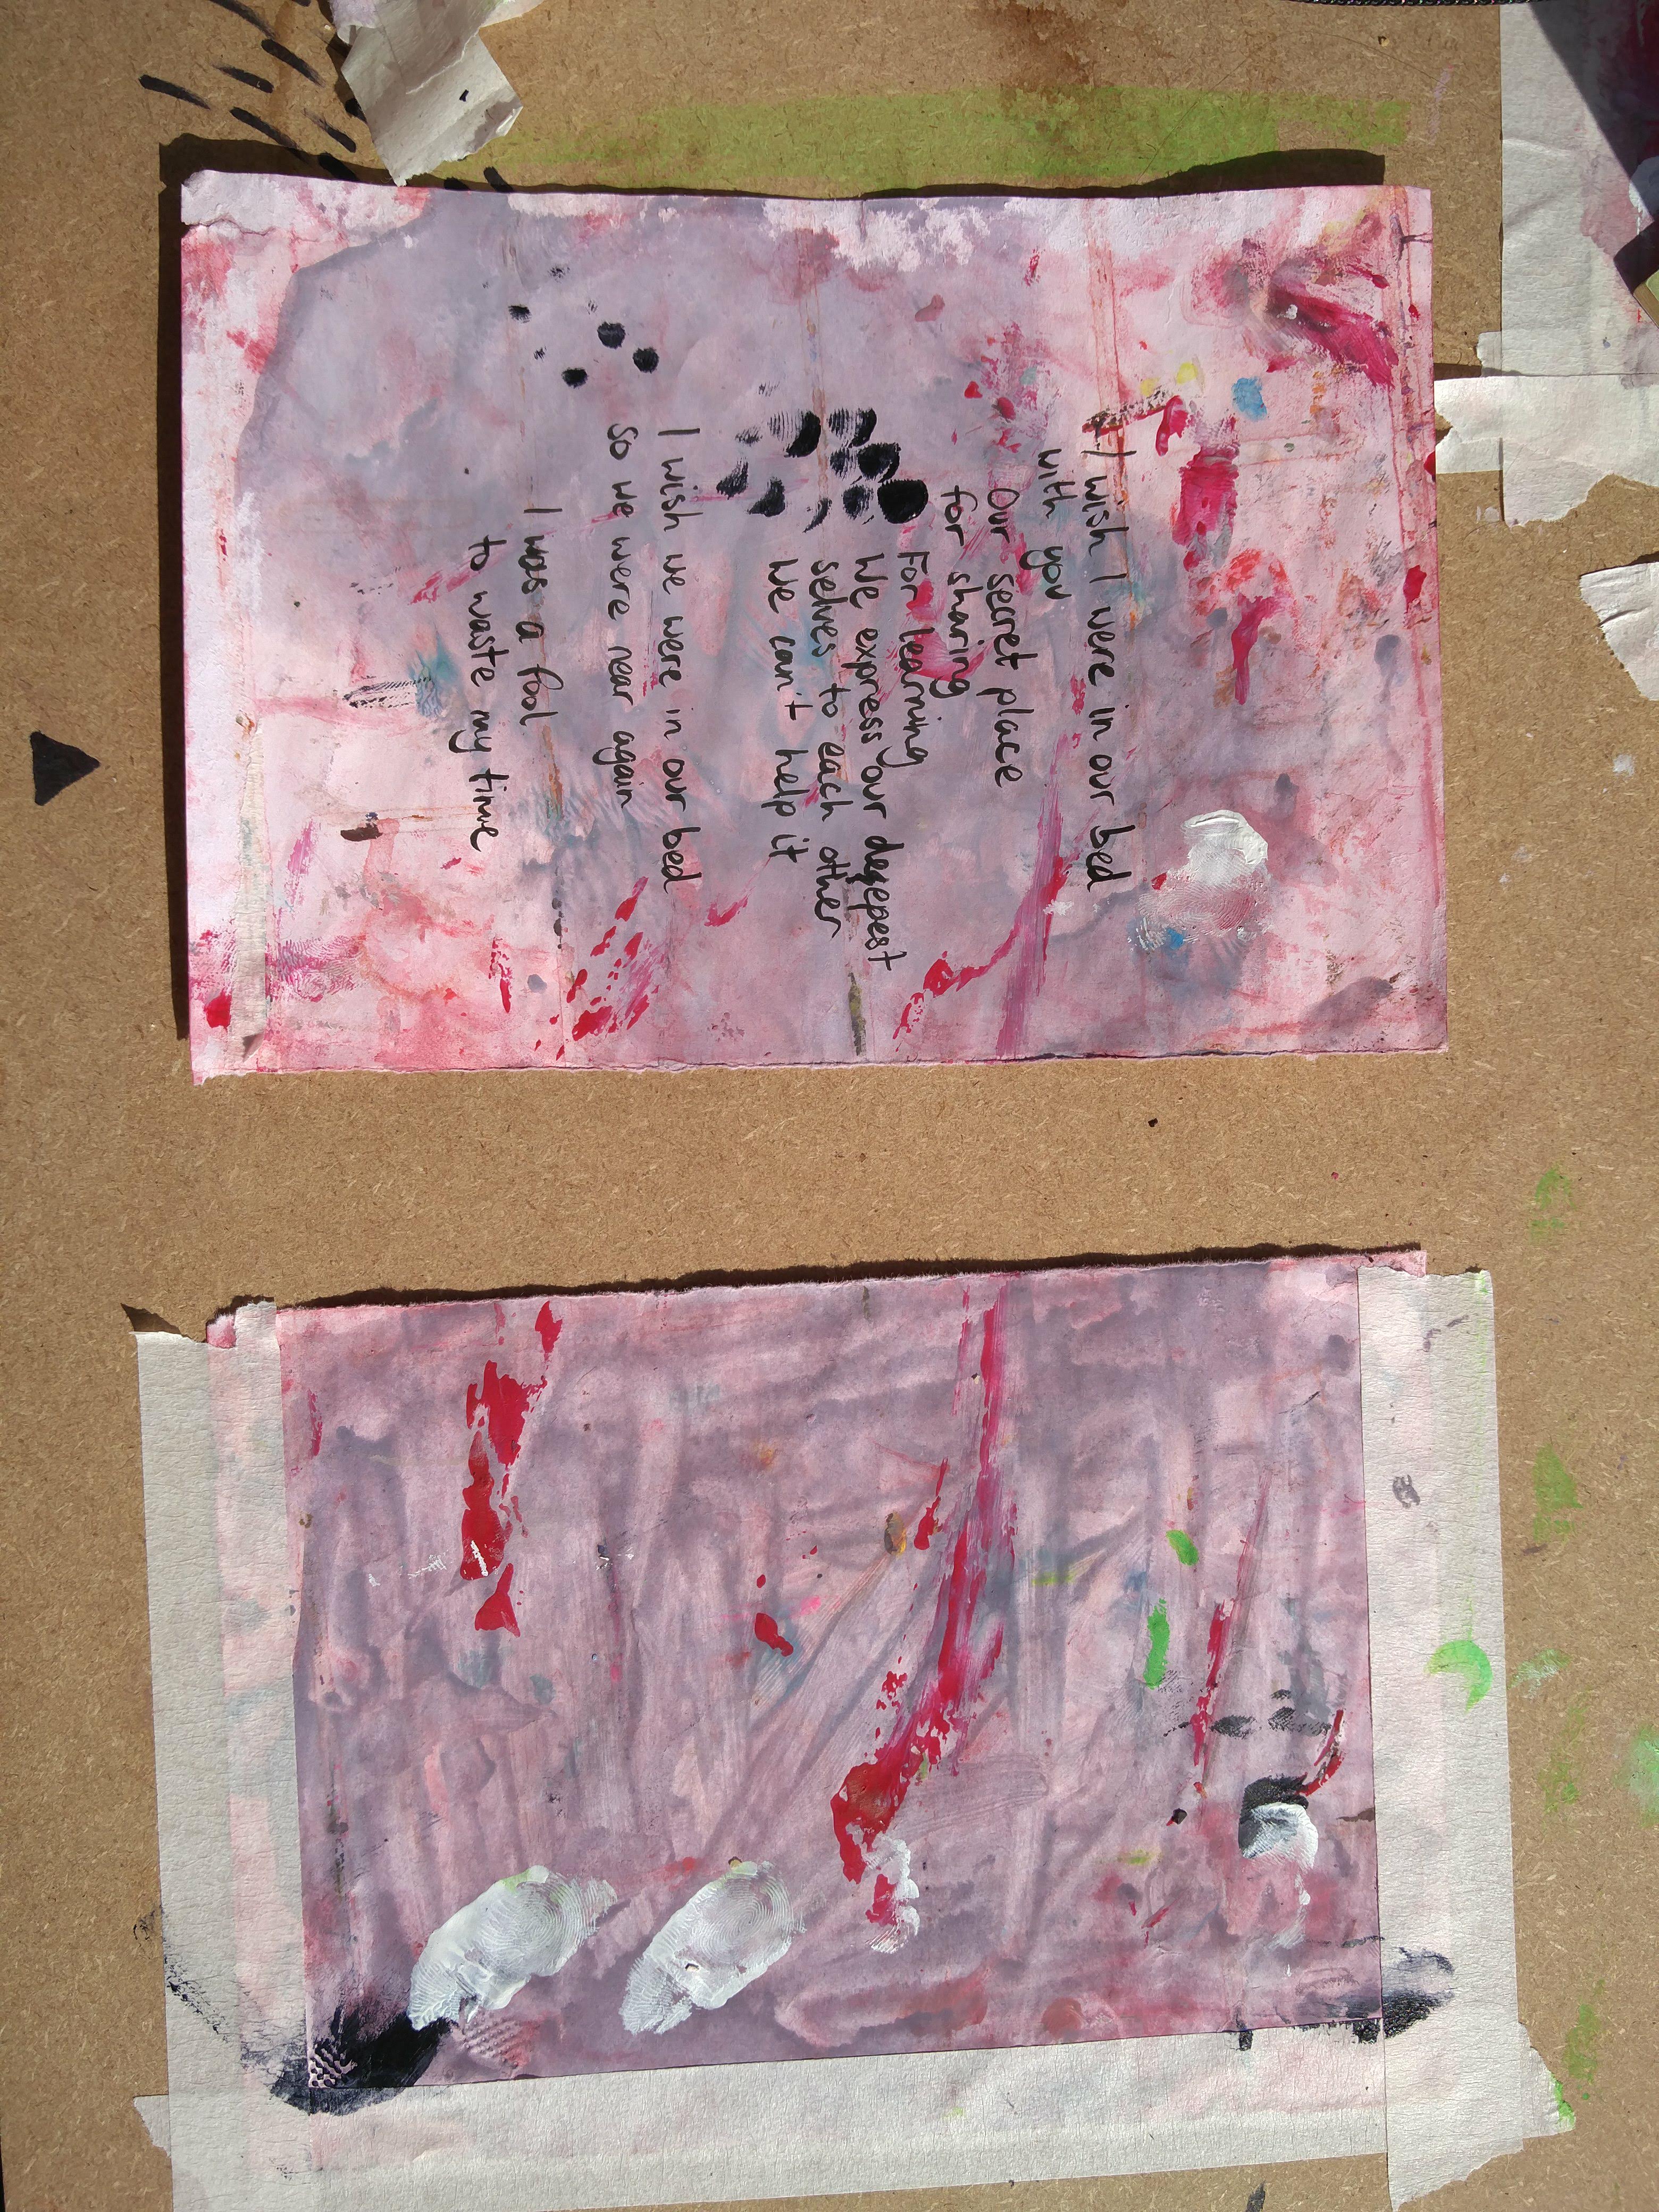 I wish I were in our bed
with you
Our secret place
for sharing
For learning
We express our degepest
selves to each other
We can't help it
I wish we were in our bed
So we were near again
I was a fool
to waste my time